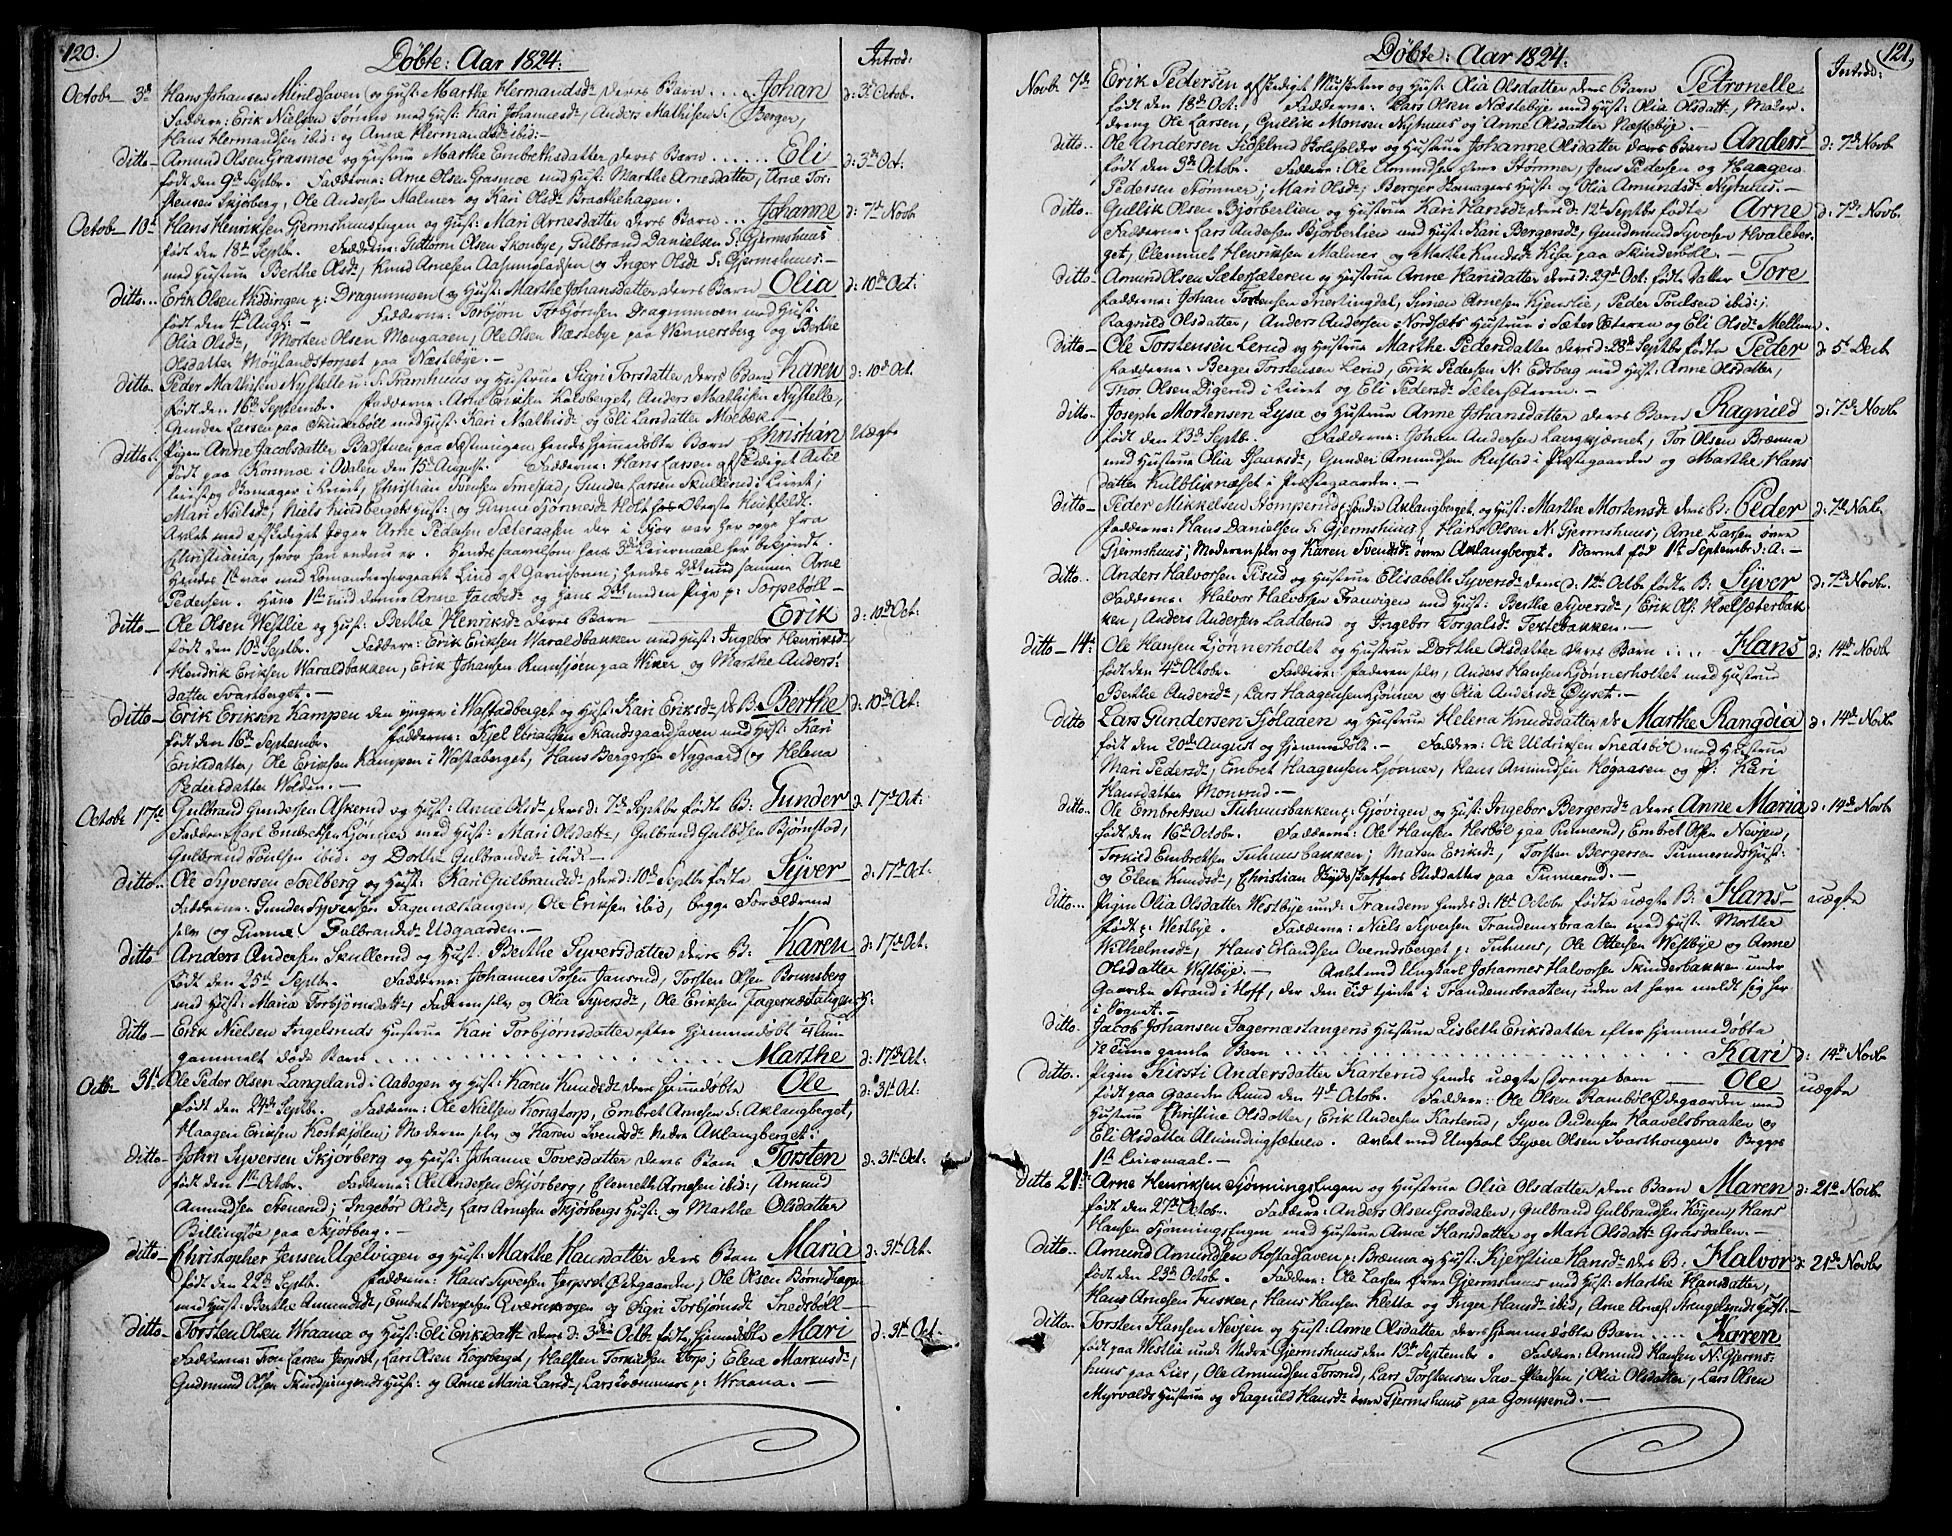 120.
Døbte: Aar 1824.
Introd:
Octob. 3d Hans Johansen (og Hust: Marthe Hermandsd. deres Barn . . . Johan d: 3d Octob.
Fadderne: Erik Nielsen med Hust: Kari Johannesd., Anders Mathisen S: Berger,
Hans Hermandsen ibid: og Anne Hermandsd. ibid:-
Ditto- Amund Olsen Grasmoe og Hustrue Marthe Embrethsdatter deres Barn . . . . . . Eli d: 3d Oct.
født den 9d Septbr. Fadderne: Arne Olsen Grasmoe med Hust: Marthe Arnesdatter, Arne Tor-
stensen Skjørberg, Ole Andersen Malmer og Kari Olsd. Braathehagen.
Octob. 10d Hans Henriksen Gjermshuusengen og Hust: Mari Arnesdatter deres Barn . . . Johanne d: 7d Novb.
født den 18d Septbr. Fadderne: Guttorm Olsen Skonbye, Gulbrand Danielsen S. Gjermshuus
med Hustrue Berthe Olsd., Knud Arnesen og Inger Olsd. S: Gjermshuus.-
Ditto . . Erik Olsen p: Dragonmoen (og Hust: Marthe Johansdatter deres Barn Olia d: 10d Oct:
født den 4d Aug: - Fadderne: Torbjørn Torbjørnsen Dragonmoen med Hust:
Olia Olsd., Morten Olsen Mangaaen, Ole Olsen Næstebye paa Wennersberg og Berthe
Olsdatter Møylandstorpet paa Næstebye.-
Ditto- Peder Mathisen Nystelle og Hustrue Sigri Torsdatter deres Barn Karen d: 10d Oct.
født den 16d Septembr. Fadderne: Arne Eriksen Kalsberget, Anders Mathisen Nystelle,
Gunder Larsen paa Skinderbøll med Hust: Kari Mathisd. og Eli Larsdatter Molbæk.-
Ditto. Pigen Anne Jacobsdatter Badstuen paa Festningen hendes hjemmedøbte Barn Christian Uægte
født paa Kormoe i Odalen den 15d August. Fadderne: Hans Larsen afskediget
i Leiret, Christian Svensen Smestad, Gunder Larsen Skullerud i Leiret;
Mari Nielsd., Niels Kindbergets Hust: og Gunne Holt hos Oberste Huitfeldt.
Avlet med afskediget Jæger Arne Pedersen Sæteraasen der i Fjor var her og fra
Christiania, hvor han endnu er. Hendes saavelsom hans 3d Leiermaal her bekjendt.
Hendes 1te var med Commandeersergeant Lind af Garnisonen; hendes 2det med samme Arne
Pedersen. Hans 1te med denne Anne Jacobsd. og hans 2det med en Pige p: Torpebøll-
Ditto- Ole Olsen Westlie og Hust: Berthe Henriksd. deres Barn Erik d: 10d Oct:
født den 10d Septbr. Fadderne: Erik Eriksen Waraldbakken med Hust: Ingebor Henriksd.
Hendrik Eriksen Waraldbakken, Erik Johansen paa Wiker og Marthe Anders-
datter Svartberget.-
Ditto- Erik Eriksen Kampen den yngre i Wastadberget og Hust: Kari Eriksd. ds B: Berthe d: 10d Oct.
født den 16d Septembr. Fadderne: Kjel Skandsgaardhaven med Hust: Kari
Eriksdatter, Ole Eriksen Kampen i Wastaberget, Hans Bergersen Nygaard og Helena
Pedersdatter Wolden.-
Octob. 17d Gulbrand Gundersen Askerud og Hust: Anne Olsd. deres d: 7d Septbr. fødte B: Gunder d: 17d Oct:
Fadderne: Embretsen Gjønner med Hust: Mari Olsdatt., Gulbrand Gulbdsen Bjørnstad,
Gulbrand Poulsen ibid: og Dorthe Gulbrandsd. ibid:-
Ditto. Ole Syversen Solberg og Hust: Kari Gulbrandsd. deres d: 10d Septbr. fødte Syver d: 17d Oct.
Fadderne: Gunder Syversen Fagernæstangen, Ole Eriksen ibid, begge Forældrene
selv og Gunne Gulbrandsd. Udgaarden.-
Ditto- Anders Andersen Skullerud og Hust: Berthe Syversdatter deres B: Karen d: 17d Oct.
født den 25d Septbr. Fadderne: Johannes Torsen Jansrud, Torsten Olsen Brunsberg
med Hust: Maria Torbjørnsdatt., Faderen selv og Olia Syversd., Ole Eriksen Fagernæstangens H:
Ditto- Erik Nielsen Ingelsruds Hustrue Kari Torbjørnsdatter efter hjemmedøbt 4
gammelt døde Barn . . . . . . . . . . Marthe d: 17d Oct.
Octb. 31d Ole Peder Olsen Langeland i Aabogen og Hust: Karen Knudsd. deres hjemmedøbte Ole d: 31d Oct:
født den 24d Septbr. Fadderne: Ole Nielsen Kongtorp, Embret Arnesen S: Aklangberget,
Haagen Eriksen Kostkjølen; Moderen selv og Karen Svendsd. Nedre Aklangberget:
Ditto- John Syversen Skjørberg og Hust: Johanne Tovesdatter deres Barn Torsten d: 31d Oct.
født den 1d Octobr. Fadderne: Ole Andersen Skjørberg, Clemeth Arnesen ibid:, Amund
Amundsen Stenerud; Ingebor Olsd., Lars Arnesen Skjørbergs Hust: og Marthe Olsdatter
Billingtøe paa Skjørberg.-
Ditto- Christopher Jensen Ugelvigen og Hust: Marthe Hansdatter deres Barn Maria d: 31d Oct.
født den 22d Septbr. Fadderne: Hans Syversen Jerpset Ødegaarden, Ole Olsen
med Hust: Berthe Amundsd., Embret Bergersen og Sigri Torbjørnsd. Snedsbøll-
Ditto- Torsten Olsen Wraana og Hust: Eli Eriksdatt. deres d: 3die Octbr. fødte hjemmedøbte Mari d: 31d Oct.
Fadderne: Tron Larsen Jerpset, Lars Olsen Kogsberget, Halsten Torkildsen Torp; Elene Markusd.,
Gudmund Olsen Hust: og Anne Maria Larsd., Lars p: Wraana.-
121.
Døbte: Aar 1824.
Introd:
Novb. 7d Erik Pedersen afskediget Musketer og Hust: Olia Olsdatter deres Barn Petronelle
født den 18d Oct. Fadderne: Lars Olsen Næstebye med Hust: Olia Olsdatt., Maler-
dreng Ole Larsen, Gullik Monsen Nyhuus og Anne Olsdatter Næstebye.-
Ditto- Ole Andersen Sigelrud og Hustrue Johanne Olsdatter deres Barn Anders d: 7d Novb.
født den 9d Octob. Fadderne: Ole Amundsen Stømner, Jens Pedersen og Haagen
Pedersen Stømner; Mari Olsd., Berger Hust: og Olia Amundsd. Nyhuus.-
Ditto- Gullik Olsen Bjørberlien og Hustrue Kari Hansd. deres d: 12d Septbr. fødte Arne d: 7d Novb.
Fadderne: Lars Andersen Bjørberlien med Hust: Kari Bergersd., Gundmund Syversen Hvaleber-
get, Clemmet Henriksen Malmer og Marthe Knudsd. Kisa paa Skinderbøll.-
Ditto- Amund Olsen Sætersæteren og Hustrue Anne Hansdatter deres d: 29d Oct: fødte Datter Tore
Fadderne: Johan Torstensen Tiertingdal, Simen Arnesen Kjenslie, Peder Poulsen ibid:;
Ragnild Olsdatter, Anders Andersen Nordsæts Hustrue i Sætersæteren og Eli Olsd. Mellum.
Ditto- Ole Torstensen Lerud og Hustrue Marthe Pedersdatter deres d: 28d Septbr. fødte Peder d: 5t Decb.
Fadderne: Berger Torstensen Lerud, Erik Pedersen N: Edsberg med Hust: Arne Olsdatter,
Thor Olsen Digerud i Leiret og Eli Pedersd. Sætersæteren.-
Ditto- Joseph Mortensen Lysa og Hustrue Anne Johansdatter deres Barn Ragnild d: 7d Novb.
født den 23d Septbr. Fadderne: Johan Andersen Langkjernet, Tor Olsen Brænna
med Hustrue Olia Isaaksd., Gunder Amundsen Rustad i Præstegaarden og Marthe Hans
datter Kulbliknæset i Præstegaarden.-
Ditto- Peder Mikkelsen Gomperud i Søndre Aklangberget og Hust: Marthe Mortensd. deres B: Peder d: 7d Novb.
Fadderne: Hans Danielsen S: Gjermshuus, Hans Olsen N. Gjermshuus, Arne Larsen øvre
Gjermshuus; Moderen selv og Karen Svendsd. øvre Aklangberget. Barnet fød 1t Septembr. d: A:-
Ditto Anders Halvorsen Tisud og Hustrue Elisabeth Syversd. deres d: 12d Octbr. fødte B: Syver d: 7d Novb.
Fadderne: Halvor Halvorsen Tranvigen med Hust: Berthe Syversd., Erik Ols. Holstebak-
ken, Anders Andersen Laddend og Ingebor Torgalsd. Textebakken.-
Ditto- 14d Ole Hansen Gjønnerholdet og Hustrue Dorthe Olsdatter deres Barn . . . . Hans d: 14d Novb.
født den 4d Octobr. Fadderne: Faderen selv, Anders Hansen Gjønnerholdet med Hustrue
Berthe Andersd., Lars Haagensen Gjønner og Olia Andersd. Øyset.-
Ditto Lars Gundersen og Hustrue Helena Knudsdatter ds Marthe Rangdia d: 14d Novb.
født den 20d August og hjemmedøbt.- Fadderne: Ole Uldriksen Snedsbøl med Hustrue
Mari Pedersd., Embret Haagensen Gjønner, Hans Amundsen Høgaasen og P: Kari
Hansdatter Monerud.-
Ditto. Ole Embretsen Tuhuusbakken p: Gjøvigen og Hust: Ingebor Bergersd. deres Anne Maria d: 14d Novb.
født den 16d Octobr. Fadderne: Ole Hansen Hesbøl paa Punnerud, Embret Olsen Nevjen,
Torkild Embretsen Tuhuusbakken; Maren Eriksd., Torsten Bergersen Punneruds Hust:
og Elen Knudsd., Christian Stifdatter paa Punnerud.-
Ditto... Pigen Olia Olsdatter Westbye und: Tranden hendes d: 1d Octobr. fødte uægte B: Hans- uægte
født p: Westbye. Fadderne: Niels Syversen Trandemsbraaten med Hust: Marthe
Wilhelmsd., Hans Erlandsen Overudsberget p: Tuhuus, Ole Ottersen Westbye og Anne
Olsdatter Westbye.- Avlet med Ungkarl Johannes Halvorsen Skinderbakken under
Gaarden Strand i Hoff, der den Tid tjente i Trandemsbraaten, uden at have meldt sig her
i Sognet.-
Ditto. Jacob Johansen Fagernæstangens Hustrue Lisbeth Eriksdatter efter hjemmedøbte
72 Time gamle Barn . . . . . . . . . . Kari d: 14d Novb.
Ditto.. Pigen Kirsti Andersdatter Karterud hendes uægte Drengebarn - Ole uægte
født paa Gaarden Ruud den 4d Octobr. Fadderne: Ole Olsen Rambøl Ødegaarden med
Hustrue Christine Olsdatter, Erik Andersen Karterud, Syver Andersen Kaavelsbraaten og
Eli Olsdatter Almindingsæteren. Avlet med Ungkarl Syver Olsen Svarthougen. Begges
1te Leiermaal.-
Ditto 21d Arne Henriksen Gjønningsengen og Hustrue Olia Olsdatter deres Barn Maren d: 21d Novb.
født den 27d Octob. Fadderne: Anders Olsen Grasdalen, Gulbrand Gulbrandsen Høyen, Hans
Hansen Gjønningsengen med Hustrue Anne Hansdatter og Mari Olsdatt. Grasdalen.-
Ditto.. Amund Amundsen Kostadhaven p: Brænna og Hust: Kjerstine Hansd. deres B: Halvor d: 21d Novb.
født den 23d Octob. Fadderne: Ole Larsen øvre Gjermshuus med Hust: Marthe Hansdatter,
Hans Arnesen Fusker, Hans Hansen Kletta og Inger Hansd. ibid, Arne Arnes. Strengelsruds Hust:-
Ditto. Torsten Hansen Nevjen og Hust: Anne Olsdatter deres hjemmedøbte Barn . . . . Karen
født paa Westlie und: Nedre Gjermshuus den 13d Septembr. Fadderne: Amund Hansen N: Gjerms-
huus paa Lier, Ole Amundsen Torsrud, Lars Torstensen Sav-Pladsen; Olia Olsdatter, Lars Olsen
Myrvolds Hustrue og Ragnild Hansd. øvre Gjermshuus paa Gomperud.-